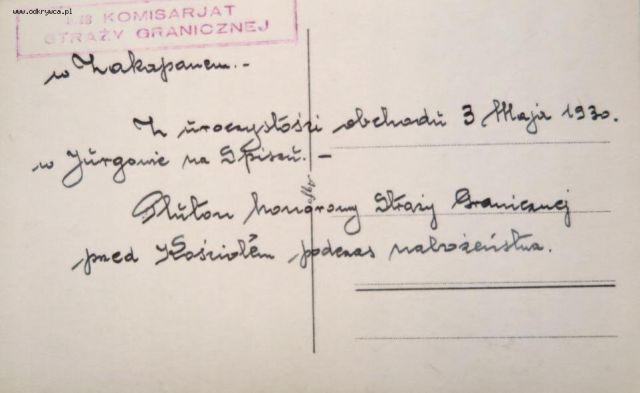 www.odkrywca.pl
KOMISARJAT
STRAŻY GRANICZNEJ
w Zakopanem.-
Z uroczystości obchodu 3 Maja 1930.
w Jurgowie na Spiszu.-
Pluton honorowy Straży Granicznej
pred Kościołem podczas nabożeństwa.